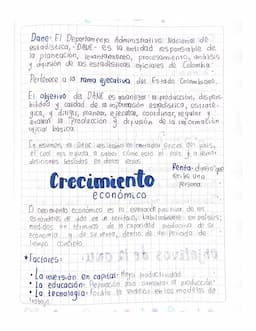 Dane: El Departamento Administrativo Nacional de
estadística, -DANE- es la entidad responsable de
la planeación, levantamiento, procesamiento, análisis
y difusión de las estadísticas oficiales de Colombia
Pertenece a la rama ejecutiva del Estado Colombiano,
El objetivo de DANE es garantizar la producción, dispon-
bilidad y calidad de la información estadística, estraté-
gica, y dirigir, planear, ejecutar, coordinar, regular y
evaluar la producción y difusión de la información
oficial básica
En resumen, el DANE es el del país,
el cual nos ayuda a saber cómo está el país y a
decisiones basadas en datos
Renta: dinero que
recibe una
persona
Crecimiento
económico
El crecimiento económico es la evolución positiva de los
estándares de vida de un territorio, habitualmente países,
medidos en términos de la capacidad productiva de su
economía y de su renta, dentro de un periodo de
tiempo concreto
* Factores:
• La inversión en capital: Mejor productividad
• La educación: Preparación para aumentar la producción
• La tecnología: en los modelos de
trabajo